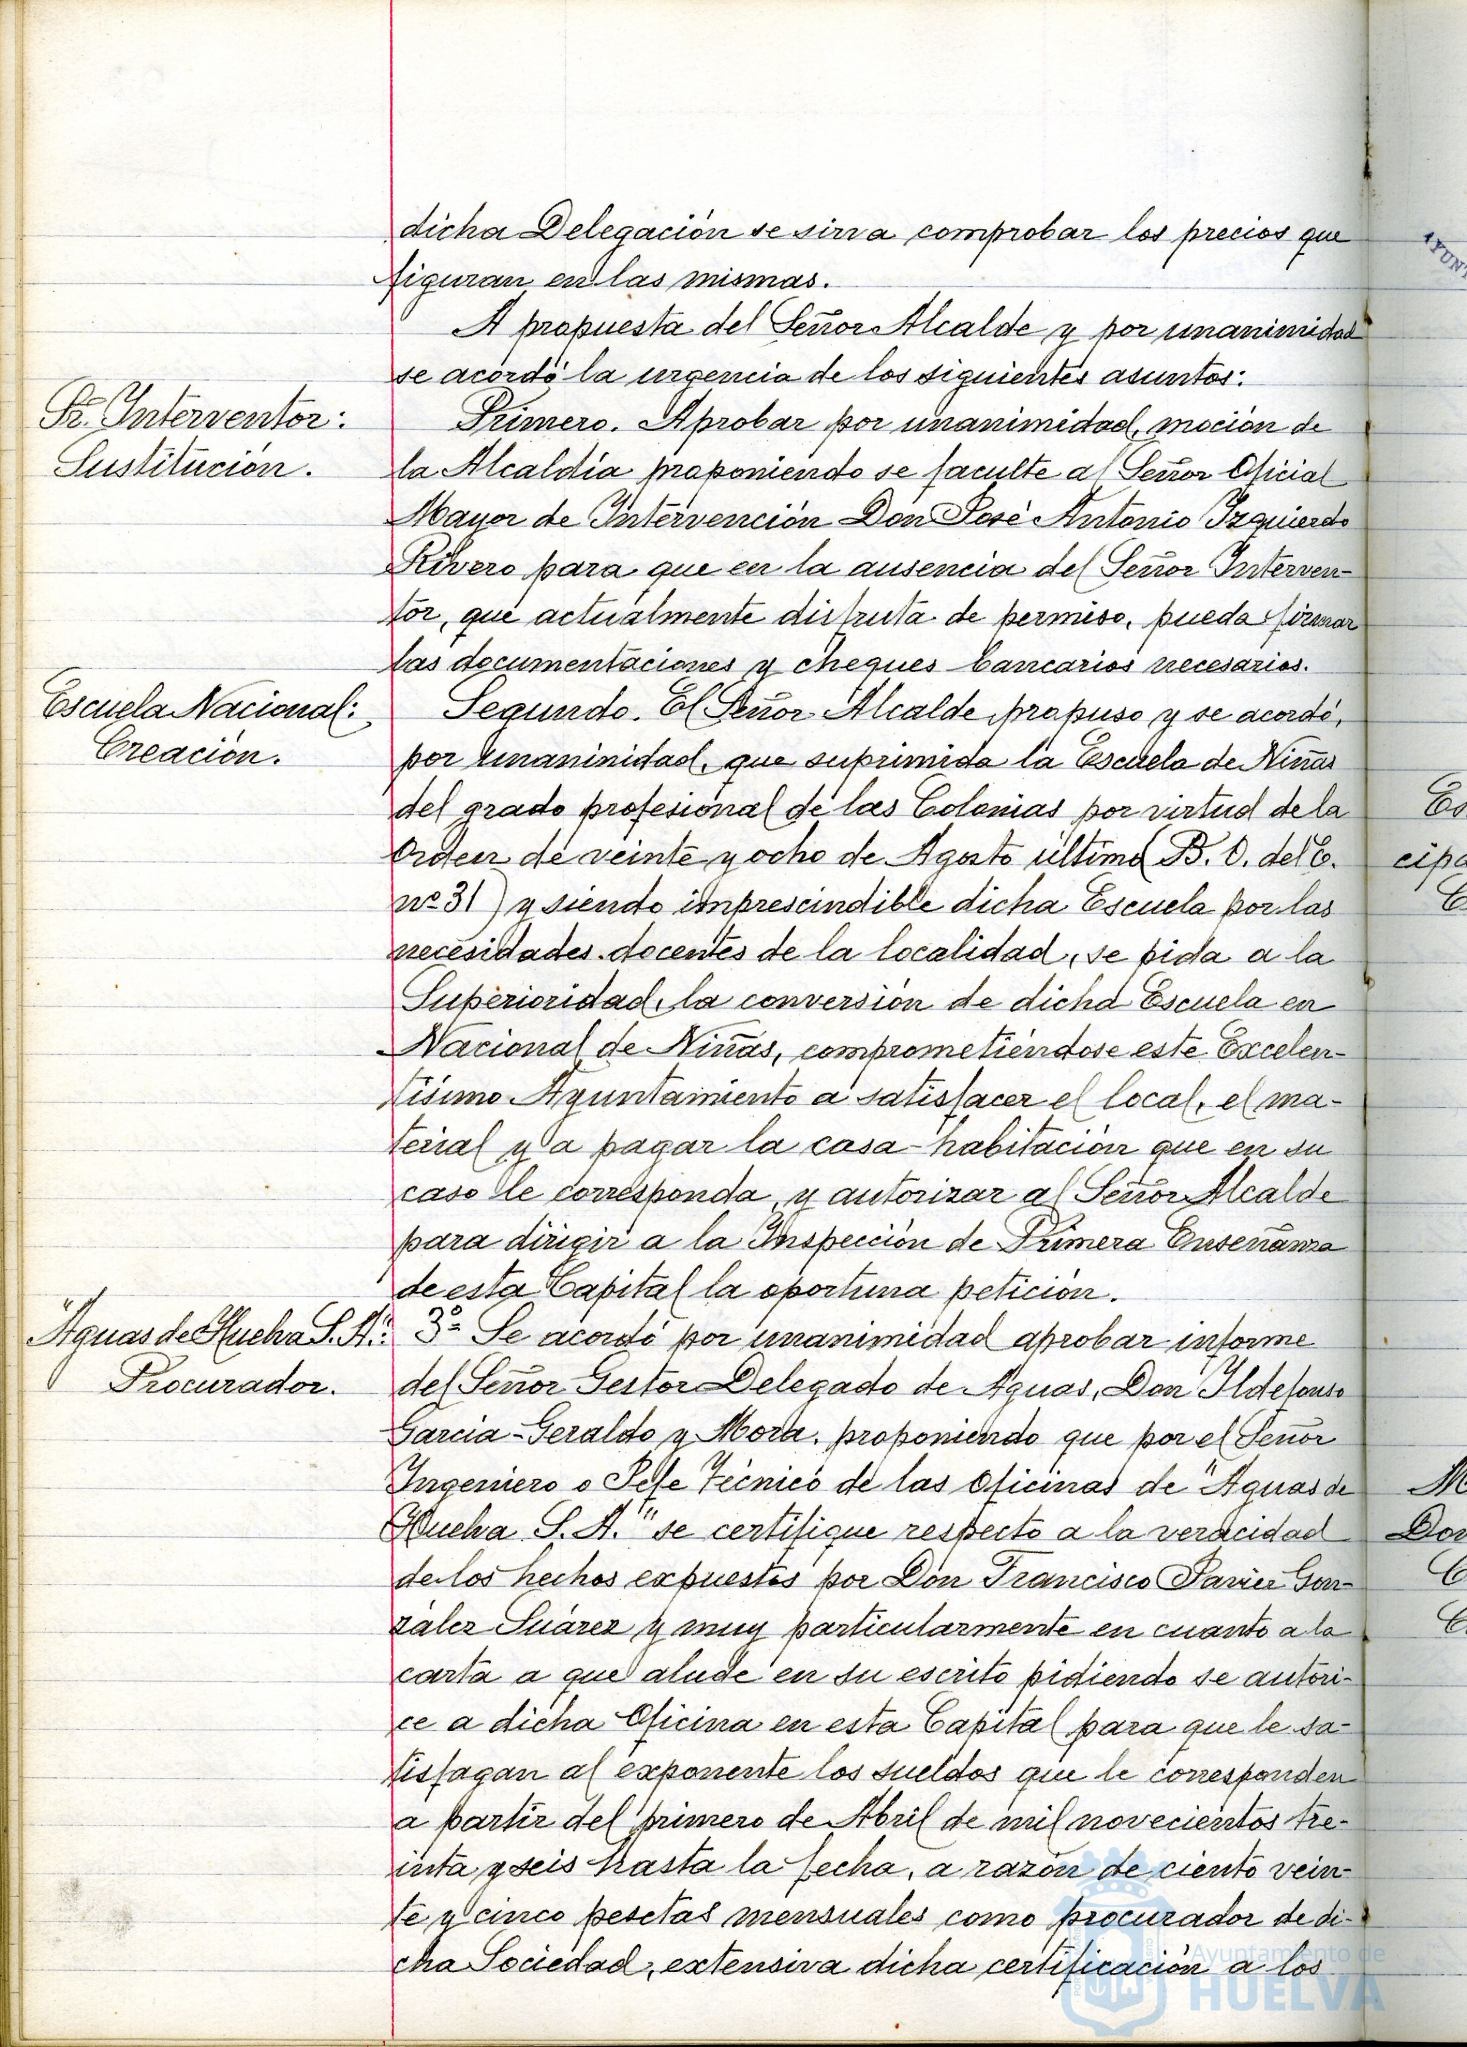 dicha Delegación se sirva comprobar los precios que
figuran en las mismas.
A propuesta del Señor Alcalde y por unanimidad
se acordó la urgencia de los siguientes asuntos:
Sr. Interventor:
Sustitución.
Primero. Aprobar por unanimidad, moción de
la Alcaldía proponiendo se faculte al Señor Oficial
Mayor de Intervención Don José Antonio Izquierdo
Rivero para que en la ausencia del Señor Interven-
tor, que actualmente disfruta de permiso, pueda firmar
las documentaciones y cheques bancarios necesarios.
Escuela Nacional:
Creación.
Segundo. El Señor Alcalde propuso y se acordó,
por unaninidad, que suprimida la Escuela de Niñas
del grado profesional de las Colonias por virtud de la
Orden de veinte y ocho de Agosto último (B. O. del E.
nº 31) y siendo imprescindible dicha Escuela por las
necesidades docentes de la localidad, se pida a la
Superioridad, la conversión de dicha Escuela en
Nacional de Niñas, comprometiéndose este Excelen-
tísimo Ayuntamiento a satisfacer el local, el ma-
terial y a pagar la casa-habitación que en su
caso le corresponda, y autorizar al Señor Alcalde
para dirigir a la Inspección de Primera Enseñanza
de esta Capital la oportuna petición.
"Aguas de Huelva S. A.":
Procurador.
3º Se acordó por unanimidad aprobar informe
del Señor Gestor Delegado de Aguas, Don Ildefonso
García-Geraldo y Mora, proponiendo que por el Señor
Ingeniero o Jefe Técnico de las Oficinas de "Aguas de
Huelva S. A." se certifique respecto a la veracidad
de los hechos expuestos por Don Francisco Javier Gon-
zález Suárez y muy particularmente en cuanto a la
carta a que alude en su escrito pidiendo se autori-
ce a dicha Oficina en esta Capital para que le sa-
tisfagan al exponente los sueldos que le corresponden
a partir del primero de Abril de mil novecientos tre-
inta y seis hasta la fecha, a razón de ciento vein-
te y cinco pesetas mensuales como procurador de di-
cha Sociedad, extensiva dicha certificación a los
Ayuntamiento de
HUELVA